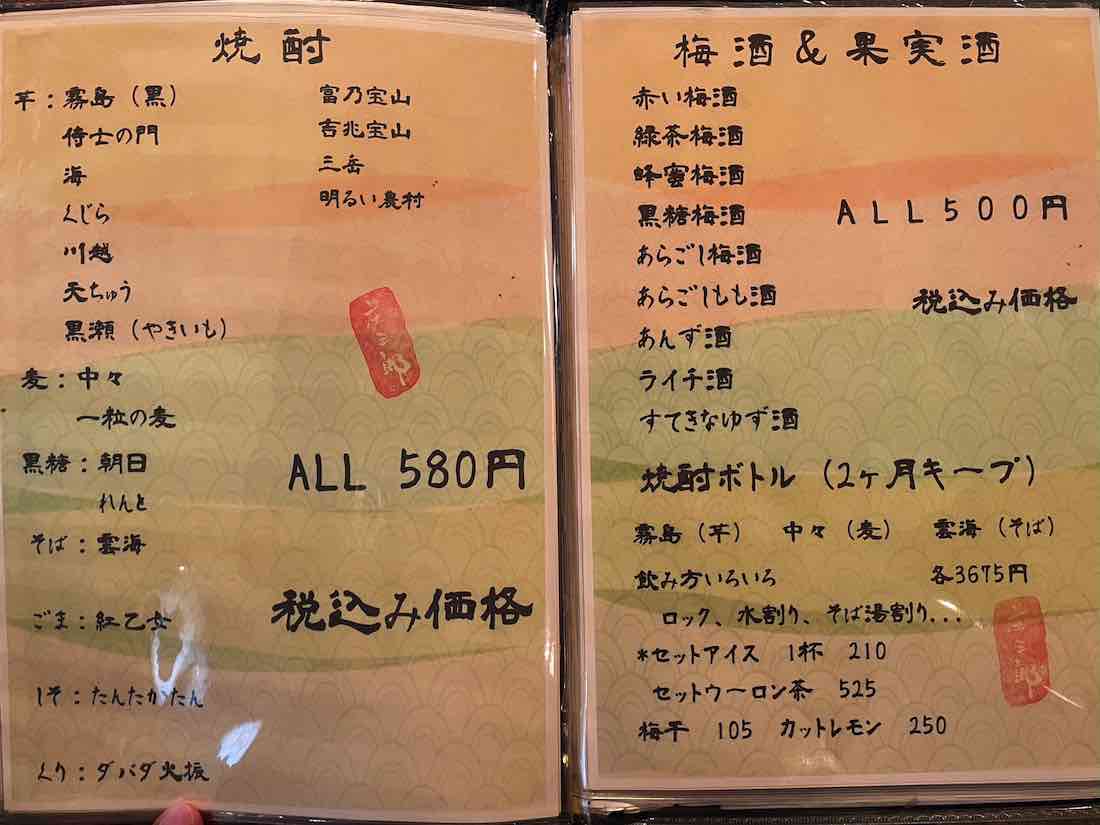 焼酎
芋：霧島（黒）
侍士の門
海
くじら
川越
天ちゅう
黒瀬（やきいも）
富乃宝山
吉兆宝山
三岳
明るい農村
麦：中々
一粒の麦
黒糖：朝日
れんと
そば：雲海
ごま：紅乙女
しそ：たんたかたん
くり：ダバダ火振
ALL 580円
税込み価格
梅酒＆果実酒
赤い梅酒
緑茶梅酒
蜂蜜梅酒
黒糖梅酒
あらごし梅酒
あらごしもも酒
あんず酒
ライチ酒
すてきなゆず酒
ALL500円
税込み価格
焼酎ボトル（2ヶ月キープ）
霧島（芋） 中々（麦） 雲海（そば）
飲み方いろいろ 各3675円
ロック、水割り、そば湯割り...
*セットアイス 1杯 210
セットウーロン茶 525
梅干 105 カットレモン 250